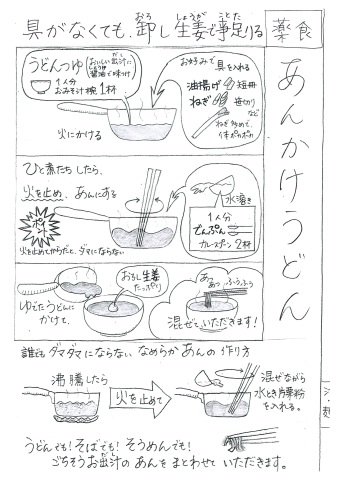 具がなくても、卸し生姜で事足りる
おろ しょうが ことた
薬食
あんかけうどん
うどんつゆ
おいしい出汁に
だし
醤油で味つけ
しょうゆ
1人分
おみそ汁椀1杯
お好みで具を入れる
油揚げ 短冊
ねぎ 笹切り
など
ねぎ炒めて、
体ポカポカ
火にかける
ひと煮たちしたら、
火を止め、あんにする
ポイント
火を止めてからだと、ダマにならない
水溶き
1人分
でんぷん
カレースプーン2杯
おろし生姜
たっぷり
ゆでたうどんに
かけて、
あっ
あっ ふうふう
混ぜて、いただきます!
誰でもダマダマにならない なめらかあんの作り方
沸騰したら
火を止めて
混ぜながら
水とき片栗粉
を入れる。
うどんでも!そばでも!そうめんでも!
ごちそうお出汁のあんをまとわせていただきます。